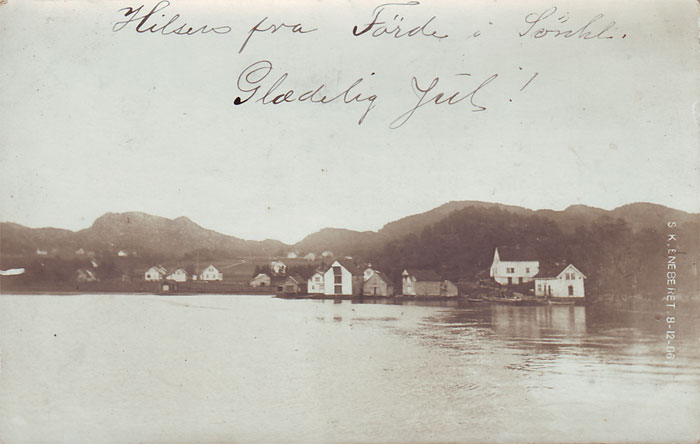 Hilsen fra Förde i Söndhl.
Glædelig Jul!
S.K. ENEBERET 8-12-06